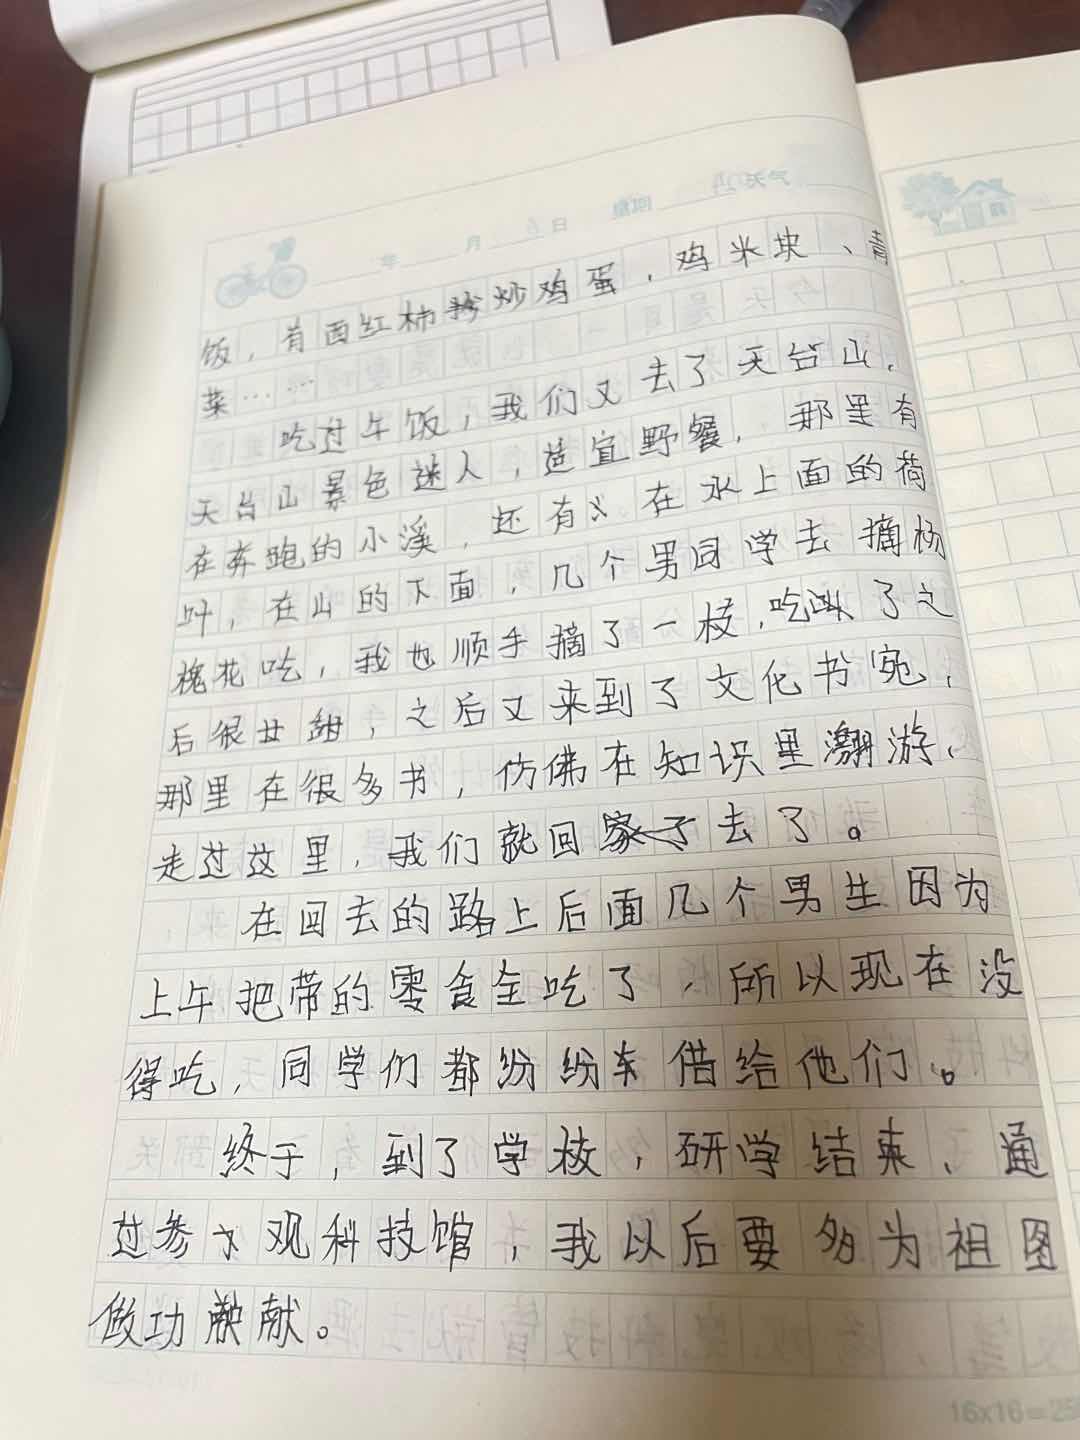 年 月 6日 星期 天气
饭，有西红柿炒鸡蛋，鸡米块、青
菜……
吃过午饭，我们又去了天台山，
天台山景色迷人，适宜野餐，那里有
在奔跑的小溪，还有在水上面的荷
叶，在山的下面，几个男同学去摘杨
槐花吃，我也顺手摘了一枝，吃了之
后很甘甜，之后又来到了文化书宛，
那里在很多书，仿佛在知识里溯游，
走过这里，我们就回去了。
在回去的路上后面几个男生因为
上午把带的零食全吃了，所以现在没
得吃，同学们都纷纷东借给他们。
终于，到了学校，研学结束、通
过参观科技馆，我以后要多为祖国
做功献。
16x16=25